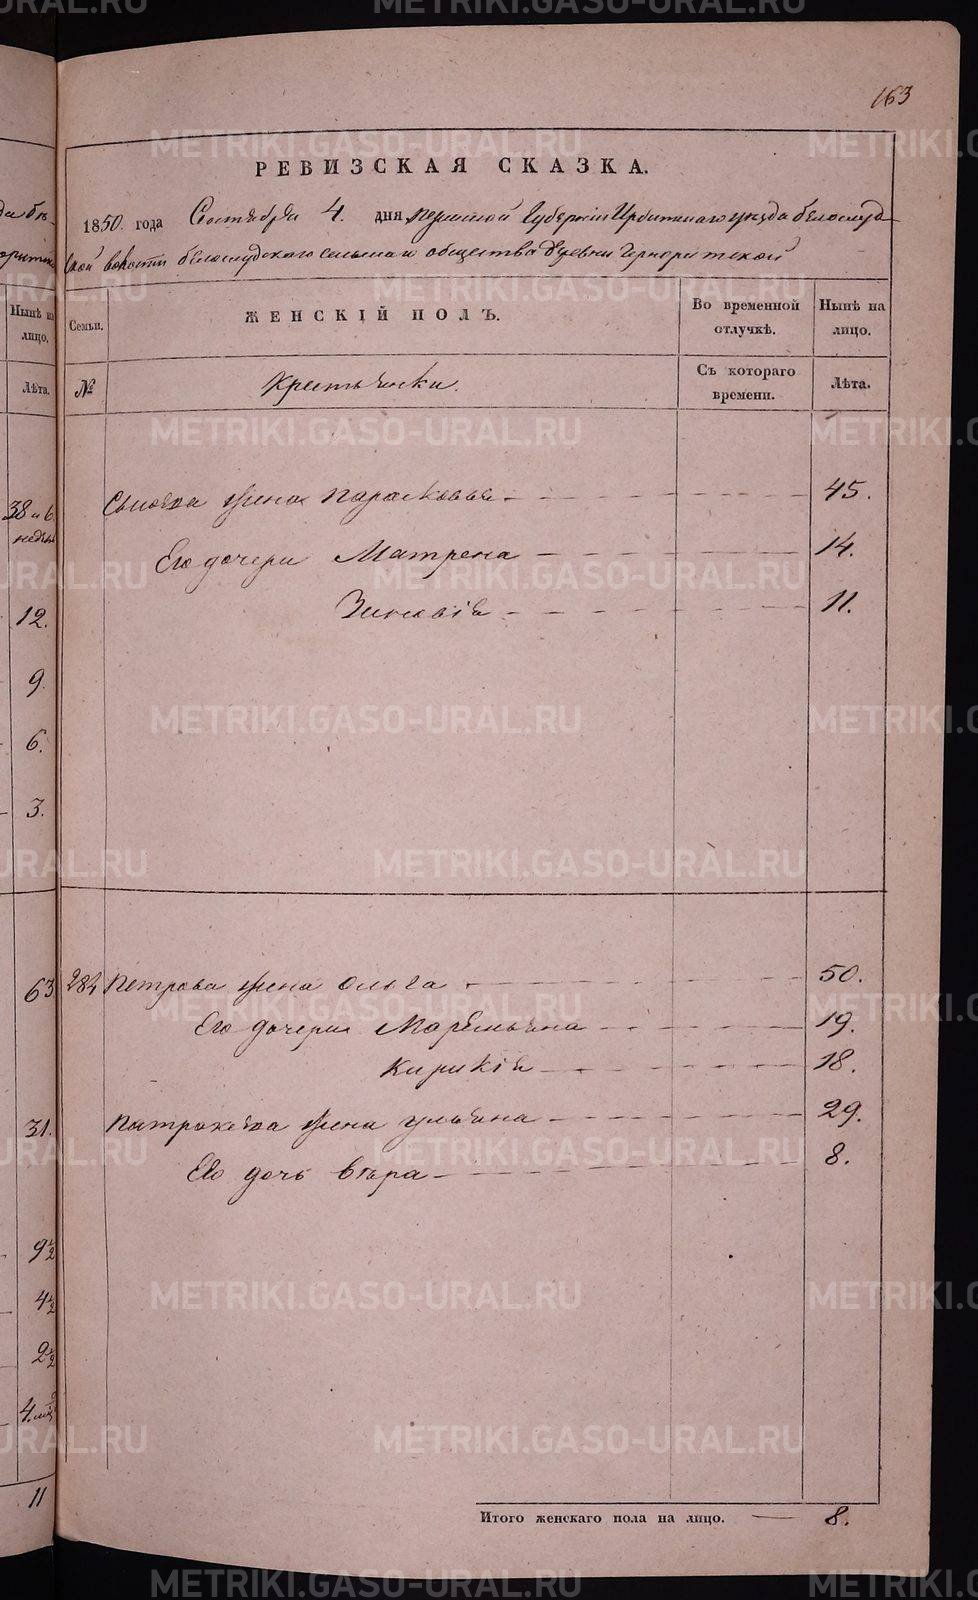 163
РЕВИЗСКАЯ СКАЗКА.
1850. года Сентября 4. дня Пермской Губернiи Ирбитскаго уезда белослуд-
ской волости белослудского сельскаго общества деревни
Семьи.
ЖЕНСКIЙ ПОЛЪ.
Во временной отлучкѣ.
Нынѣ на лицо.
№
Крестьянки.
Съ котораго времени.
Лѣта.
жена Парасковья 45.
Его дочери Матрена 14.
Зиновiя 11.
284 Петрова жена Ольга 50.
Его дочери Маремьяна 19.
Кирикiя 18.
Патракеева жена ульяна 29.
Его дочь вѣра 8.
Итого женскаго пола на лицо. 8.
Нынѣ на лицо.
Лѣта.
38 и 6 недѣль
12.
9.
6.
3.
63
31.
9½
4½
2½
11
METRIKI.GASO-URAL.RU